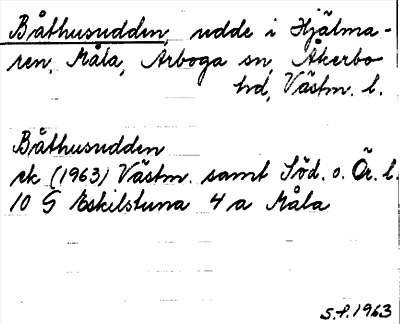 Båthusudden, udde i Hjälma-
ren, Måla, Arboga sn, Åkerbo
hd, Västm. l.
Båthusudden
rk (1963) Västm. samt Söd. o. Ör. l.
10 G Eskilstuna 4 a Måla
S.f. 1963